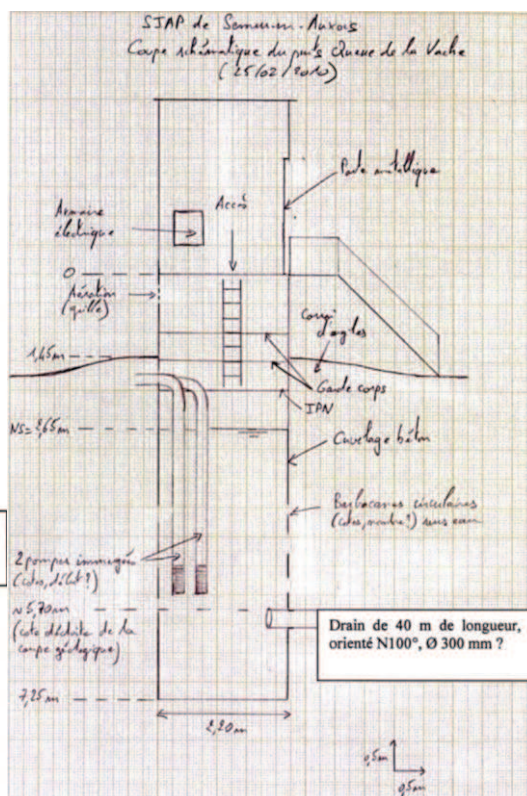 SIAP de Semur-en-Auxois
Coupe schématique du puits Queue de la Vache
(25/02/2010)
Porte métallique
Accès
Armoire
électrique
0
Aération
(grille)
Corroi
d'argiles
1,45m
Garde corps
IPN
NS = 2,65m
Cuvelage béton
Barbacanes circulaires
(cotes, nombre?) sous eau
2 pompes immergées
(cotes, débit?)
~5,70m
(cote déduite de la
coupe géologique)
Drain de 40 m de longueur,
orienté N100°, Ø 300 mm ?
7,25m
2,20m
0,5m
0,5m